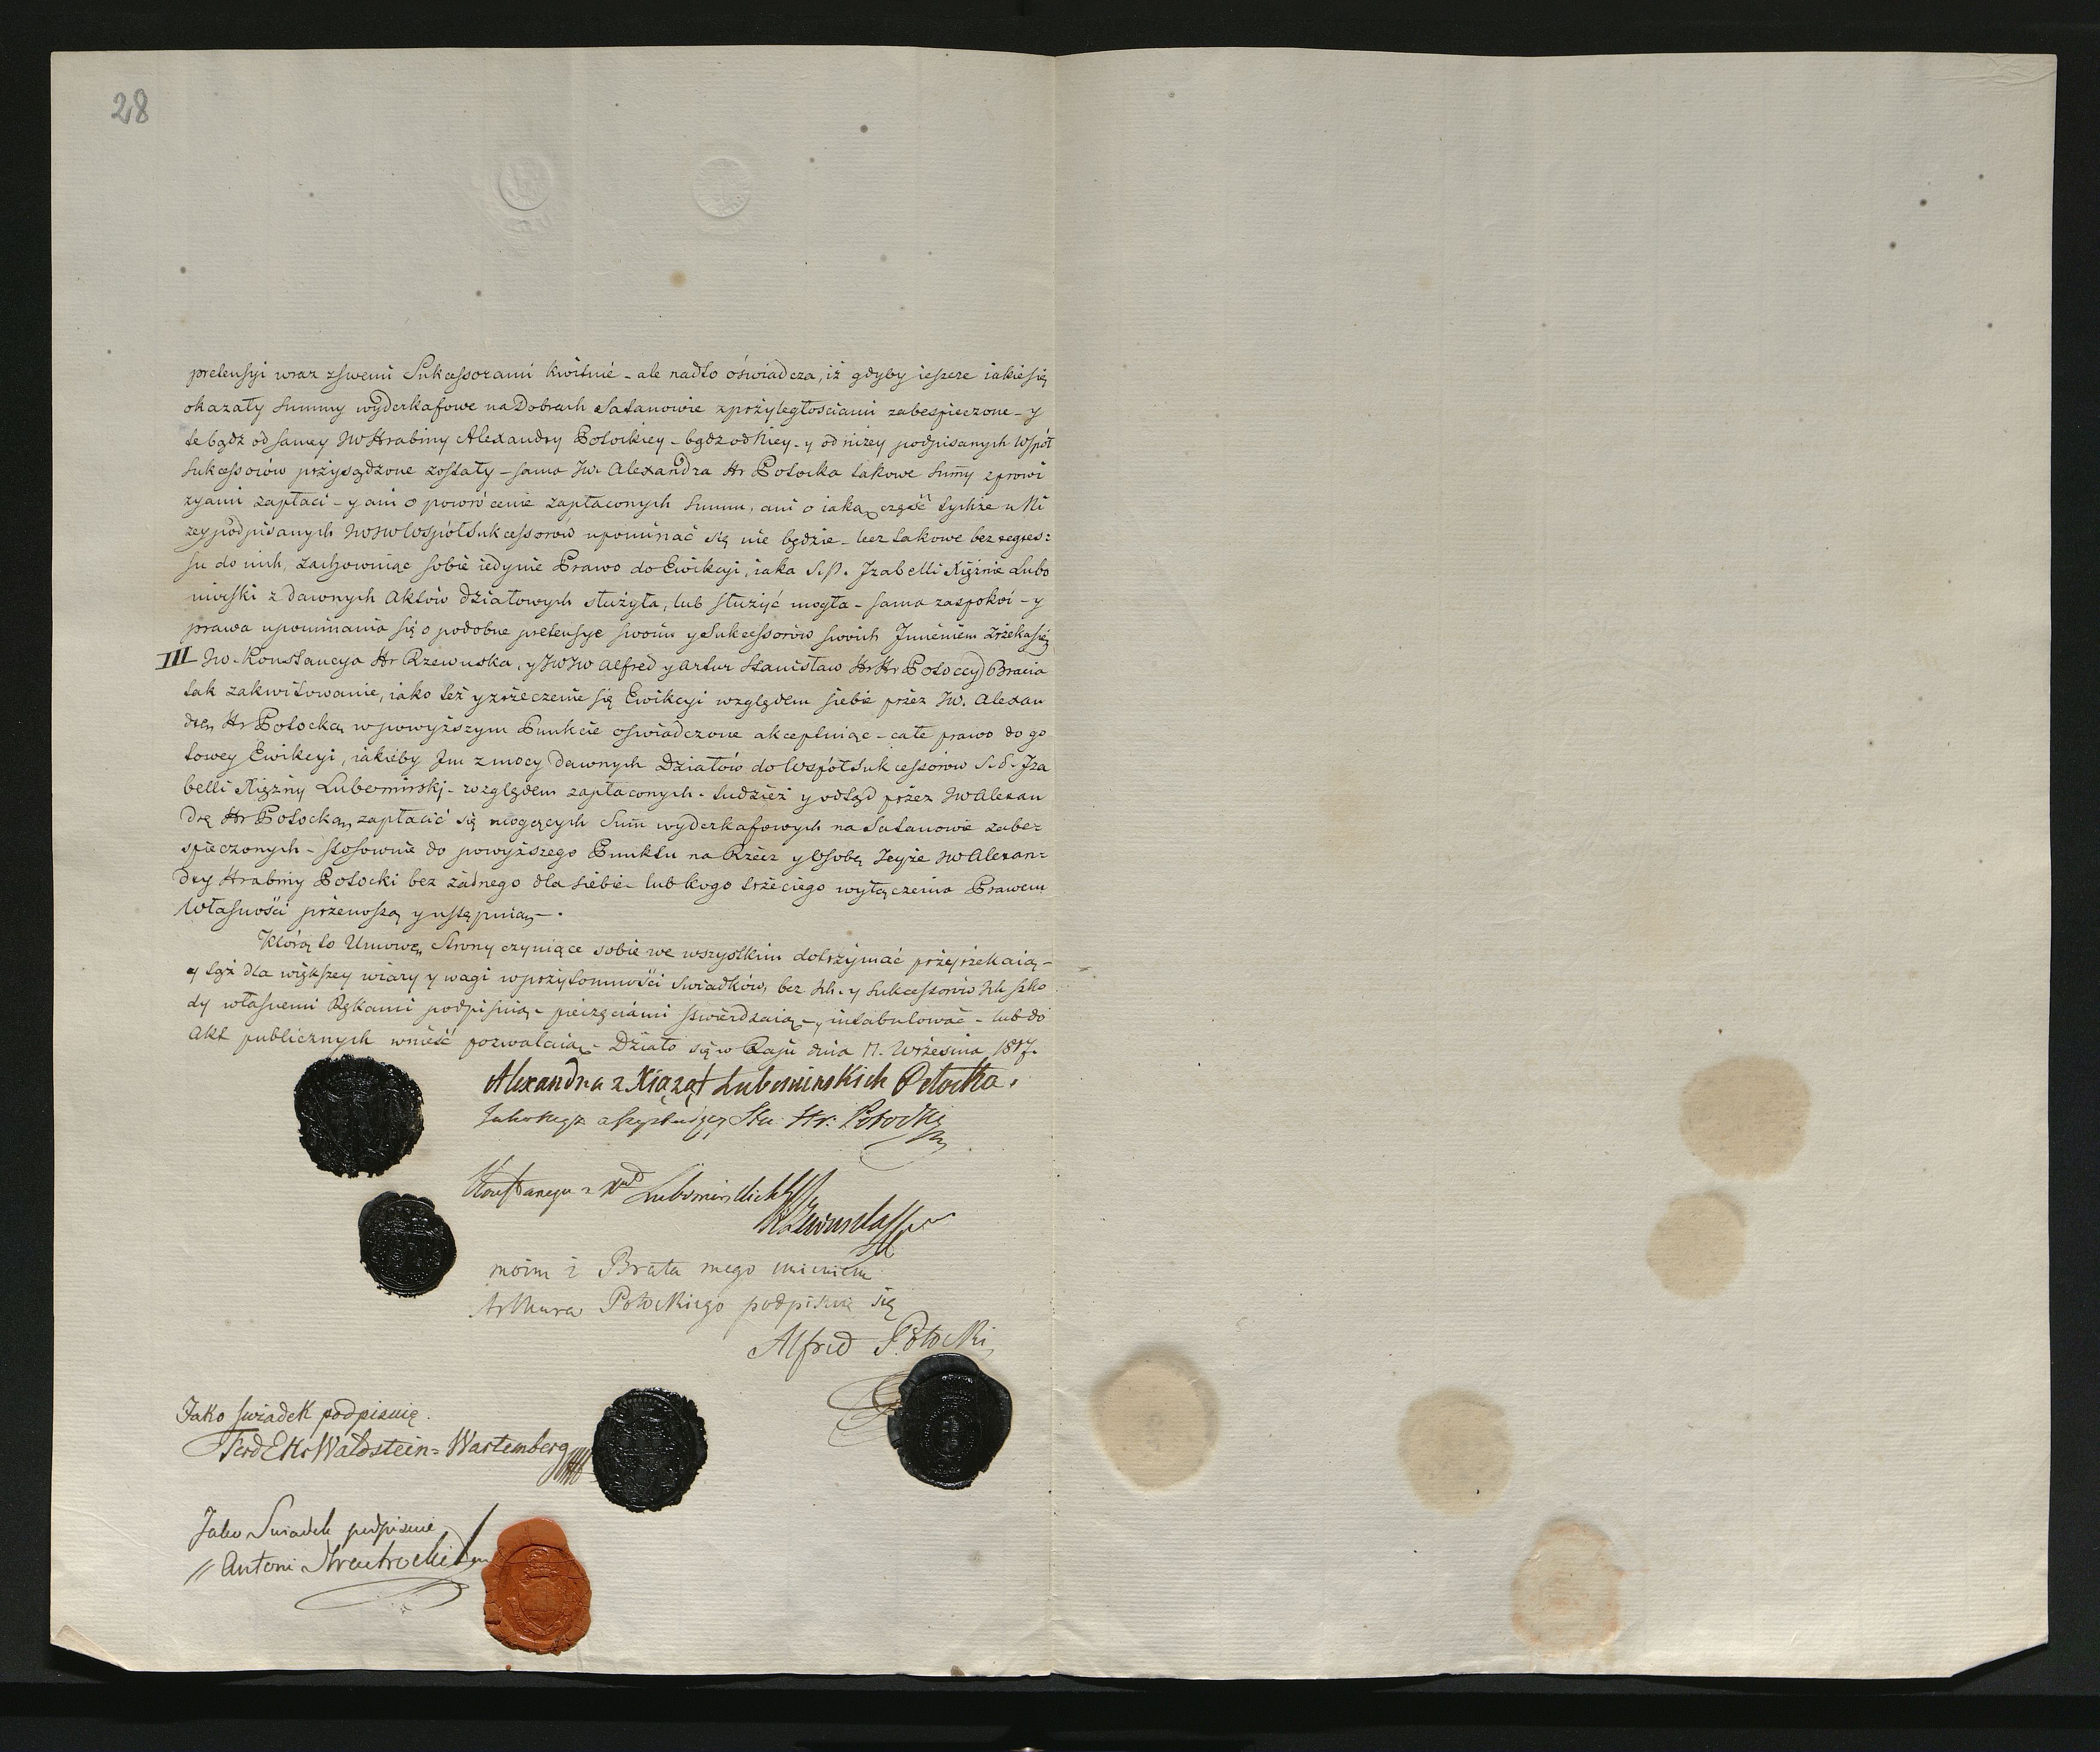 28
pretensyi wraz zswemi Sukcessorami kwituie - ale nadto oświadcza, iż gdyby ieszcze iakie się
okazały Summy wyderkafowe na Dobrach Satanowie zprzyległościami zabespieczone - y
te bądz od samey JW Hrabiny Alexandry Potockiey - bądz od Niey - y od niżey podpisanych Wspoł
Sukcessorów przysądzone zostały - sama JW. Alexandra Hr Potocka takowe Summy zprowi
zyami zapłaci - y ani o powrócenie zapłaconych Summ, ani o iaką część tychże u Ni
żey podpisanych JWJW Wspołsukcessorow upominać się nie będzie - lecz takowe bez regres=
su do nich, zachowuiąc sobie iedynie Prawo do Ewikcyi, iaka S.P. Izabelli Xiężnie Lubo
mirski z dawnych Aktów działowych służyła, lub służyć mogła - sama zaspokoi - y
prawa upominania się o podobne pretensye swoim y Sukcessorów swoich Imieniem zrzeka się
III JW. Konstancya Hr Rzewuska, y JWJW Alfred y Artur Stanisław HrHr Potoccy Bracia
tak zakwitowanie, iako też y zrzeczenie się Ewikcyi względem siebie przez JW. Alexan
drę Hr Potocką w powyższym Punkcie oświadczone akceptuiąc - całe prawo do go
towey Ewikcyi, iakieby Im z mocy dawnych Działów do Wspołsukcessorow S.P. Iza
belli Xiężny Lubomirskj - względem zapłaconych - tudzież y odtąd przez JW Alexan
drę Hr Potocką zapłacić się mogących Summ wyderkafowych na Satanowie zabe=
spieczonych - stosownie do powyższego Punktu na Rzecz y Osobę Teyże JW Alexan=
dry Hrabiny Potocki bez żadnego dla siebie lub kogo trzeciego wyłączenia Prawem
Własności przenoszą y ustępuią - .
Którą to Umowę Strony czyniące sobie we wszystkim dotrzymać przyrzekaią -
y tęż dla większey wiary y wagi w przytomności Swiadków, bez Ich y Sukcessorów Ich szko
dy własnemi Rękami podpisuią - pieczęciami stwierdzaią - y intabulować - lub do
Akt publicznych wnieść pozwalaią - Działo się w Raju dnia 17. Września 1817.
Alexandra z Xiążąt Lubomirskich Potocka.
Jako Mąż assystuiący Sta: Hr: Potocki
Konstancya z Xąt Lubomirskich
Rzewuska
moim i Brata mego imieniem
Arthura Potockiego podpisuię się
Alfred Potocki
Jako swiadek podpisuię.
Ferd E Hr Waldstein=Wartemberg
Jako Swiadek podpisuie
Antoni